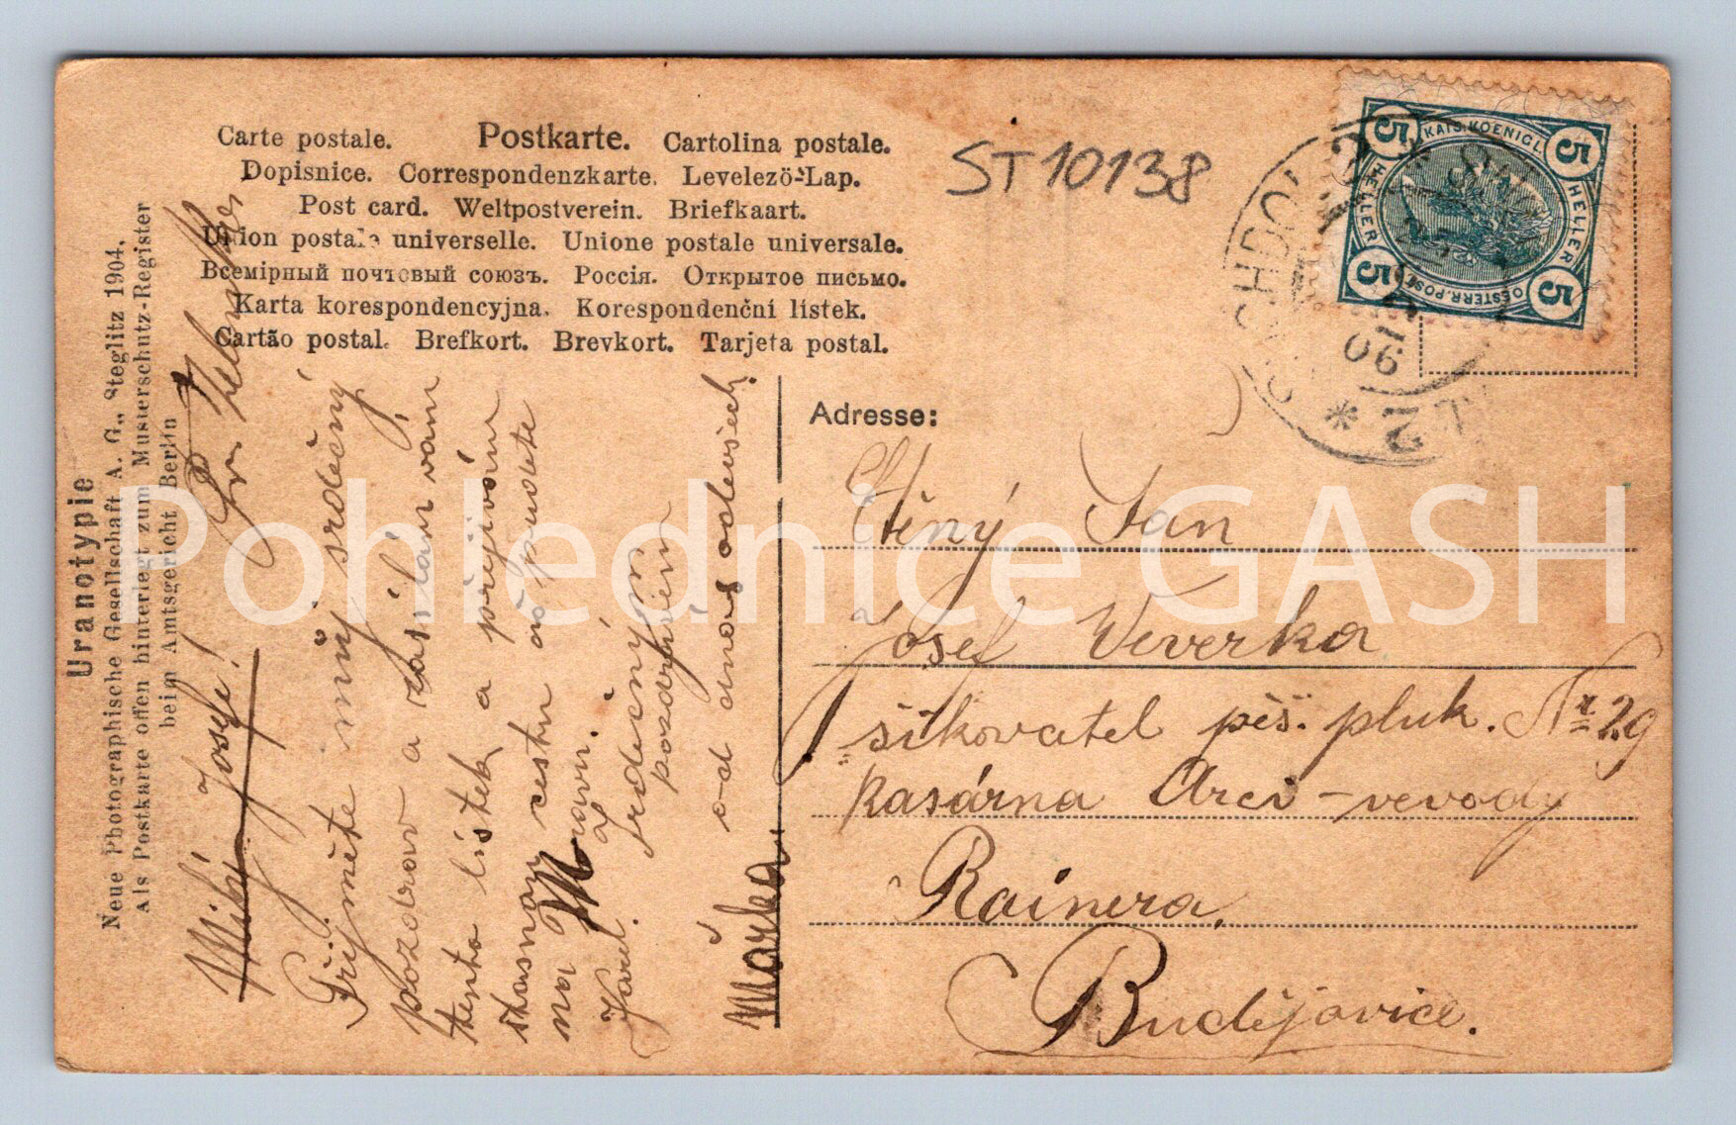 Carte postale. Postkarte. Cartolina postale.
Dopisnice. Correspondenzkarte. Levelező-Lap.
Post card. Weltpostverein. Briefkaart.
Union postale universelle. Unione postale universale.
Всемірный почтовый союзъ. Россія. Открытое письмо.
Karta korespondencyjna. Korespondenční lístek.
Cartão postal. Brefkort. Brevkort. Tarjeta postal.
ST10138
5 KAIS. KOENIGL. 5
HELLER HELLER
5 OESTERR. POST 5
06
* 2
Uranotypie
Neue Photographische Gesellschaft A. G., Steglitz 1904.
Als Postkarte offen hinterlegt zum Musterschutz-Register
beim Amtsgericht Berlin
Milý Josefe!
Přijměte můj srdečný
pozdrav a zasílám vám
tento lístek a
cestu až pudete
na
Karel.
Srdečným
pozdravem
od
Adresse:
Ctěný Pan
Josef Weverka
šikovatel pěš. pluk. Nr 29
kasárna Arci-vevody
Rainera.
Budějovice.
Pohlednice GASH